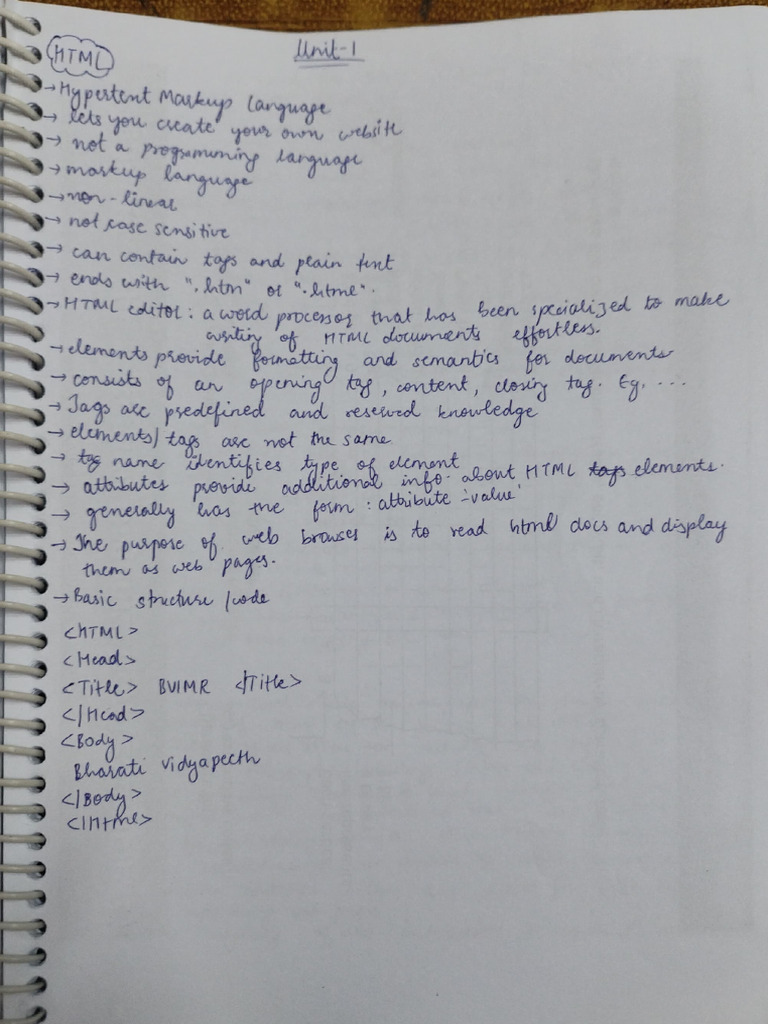 HTML
Unit-1
→ Hypertent Markup Language
→ lets you create your own website
→ not a programming language
→ markup language
→ non-linear
→ not case sensitive
→ can contain tags and plain text
→ ends with ".htm" or ".html".
→ HTML editor: a word processor that has been specialized to make
writing of HTML documents effortless.
→ elements provide formatting and semantics for documents
→ consists of an opening tag, content, closing tag. Eg. ...
→ Tags are predefined and reserved knowledge
→ elements/tags are not the same
→ tag name identifies type of element
→ attributes provide additional info. about HTML tags elements.
→ generally has the form: attribute = 'value'
→ The purpose of web browser is to read html docs and display
them as web pages.
→ Basic structure/code
<HTML>
<Head>
<Title> BVIMR </Title>
</Head>
<Body>
Bharati Vidyapeeth
</Body>
</Html>